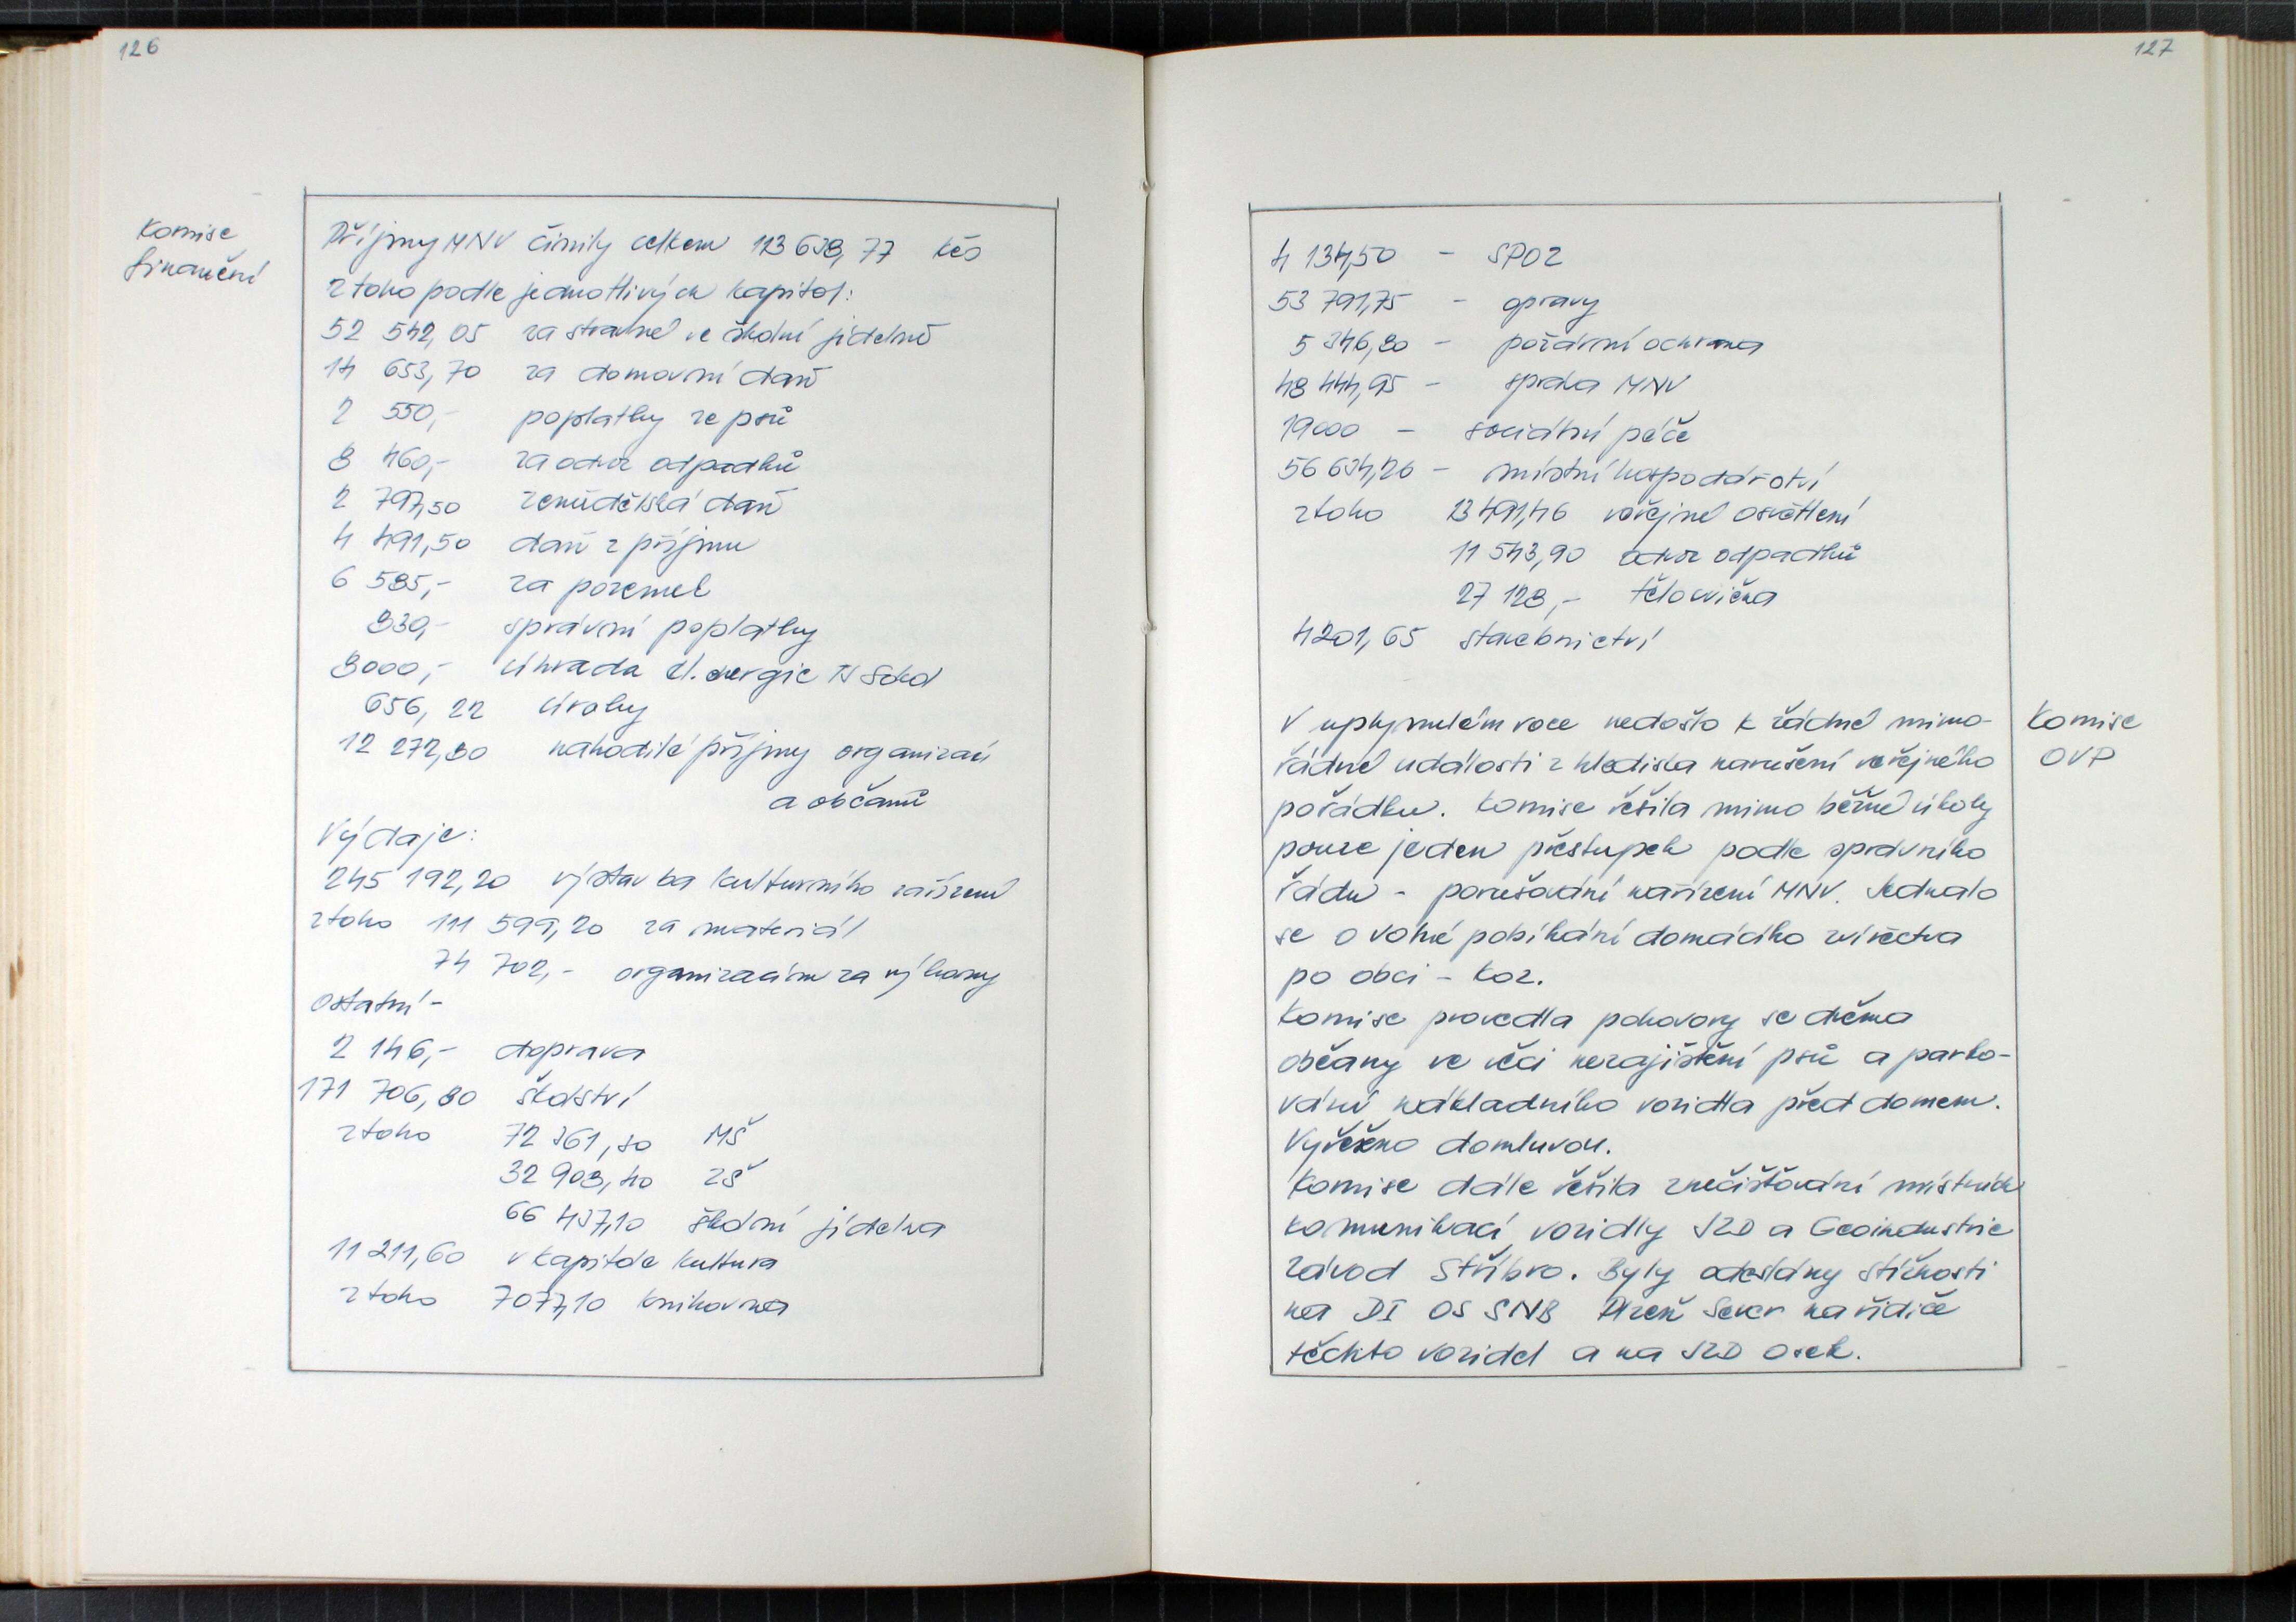 126
Komise
finanční
Příjmy MNV činily celkem 113 638,77 Kčs
z toho podle jednotlivých kapitol:
52 542,05 za stravné ve školní jídelně
14 653,70 za domovní daň
2 550,- poplatky ze psů
8 460,- za odvoz odpadků
2 797,50 zemědělská daň
4 491,50 daň z příjmu
6 585,- za pozemek
830,- správní poplatky
8000,- úhrada el. energie TJ Sokol
656,22 úroky
12 272,80 nahodilé příjmy organizací
a občanů
Výdaje:
245 192,20 výstavba kulturního zařízení
z toho 111 599,20 za materiál
74 702,- organizacím za výkony
Ostatní -
2 146,- doprava
171 706,80 školství
z toho 72 361,30 MŠ
32 908,40 ZŠ
66 437,10 školní jídelna
11 211,60 v kapitole kultura
z toho 7077,10 knihovna
127
4 134,50 - SPOZ
53 791,75 - opravy
5 346,80 - požární ochrana
48 444,95 - správa MNV
19000 - sociální péče
56 634,26 - místní hospodářství
z toho 13 491,46 veřejné osvětlení
11 543,90 odvoz odpadků
27 128,- tělocvična
4201,65 stavebnictví
V uplynulém roce nedošlo k žádné mimo-
řádné události z hlediska narušení veřejného
pořádku. Komise řešila mimo běžné úkoly
pouze jeden přestupek podle správního
řádu - porušování nařízení MNV. Jednalo
se o volné pobíhání domácího zvířectva
po obci - koz.
Komise provedla pohovory se dvěma
občany ve věci nezajištění psů a parko-
vání nákladního vozidla před domem.
Vyřešeno domluvou.
Komise dále řešila znečišťování místních
komunikací vozidly JZD a Geoindustrie
závod Stříbro. Byly odeslány stížnosti
na DI OS SNB Plzeň Sever na řidiče
těchto vozidel a na JZD Osek.
Komise
OVP